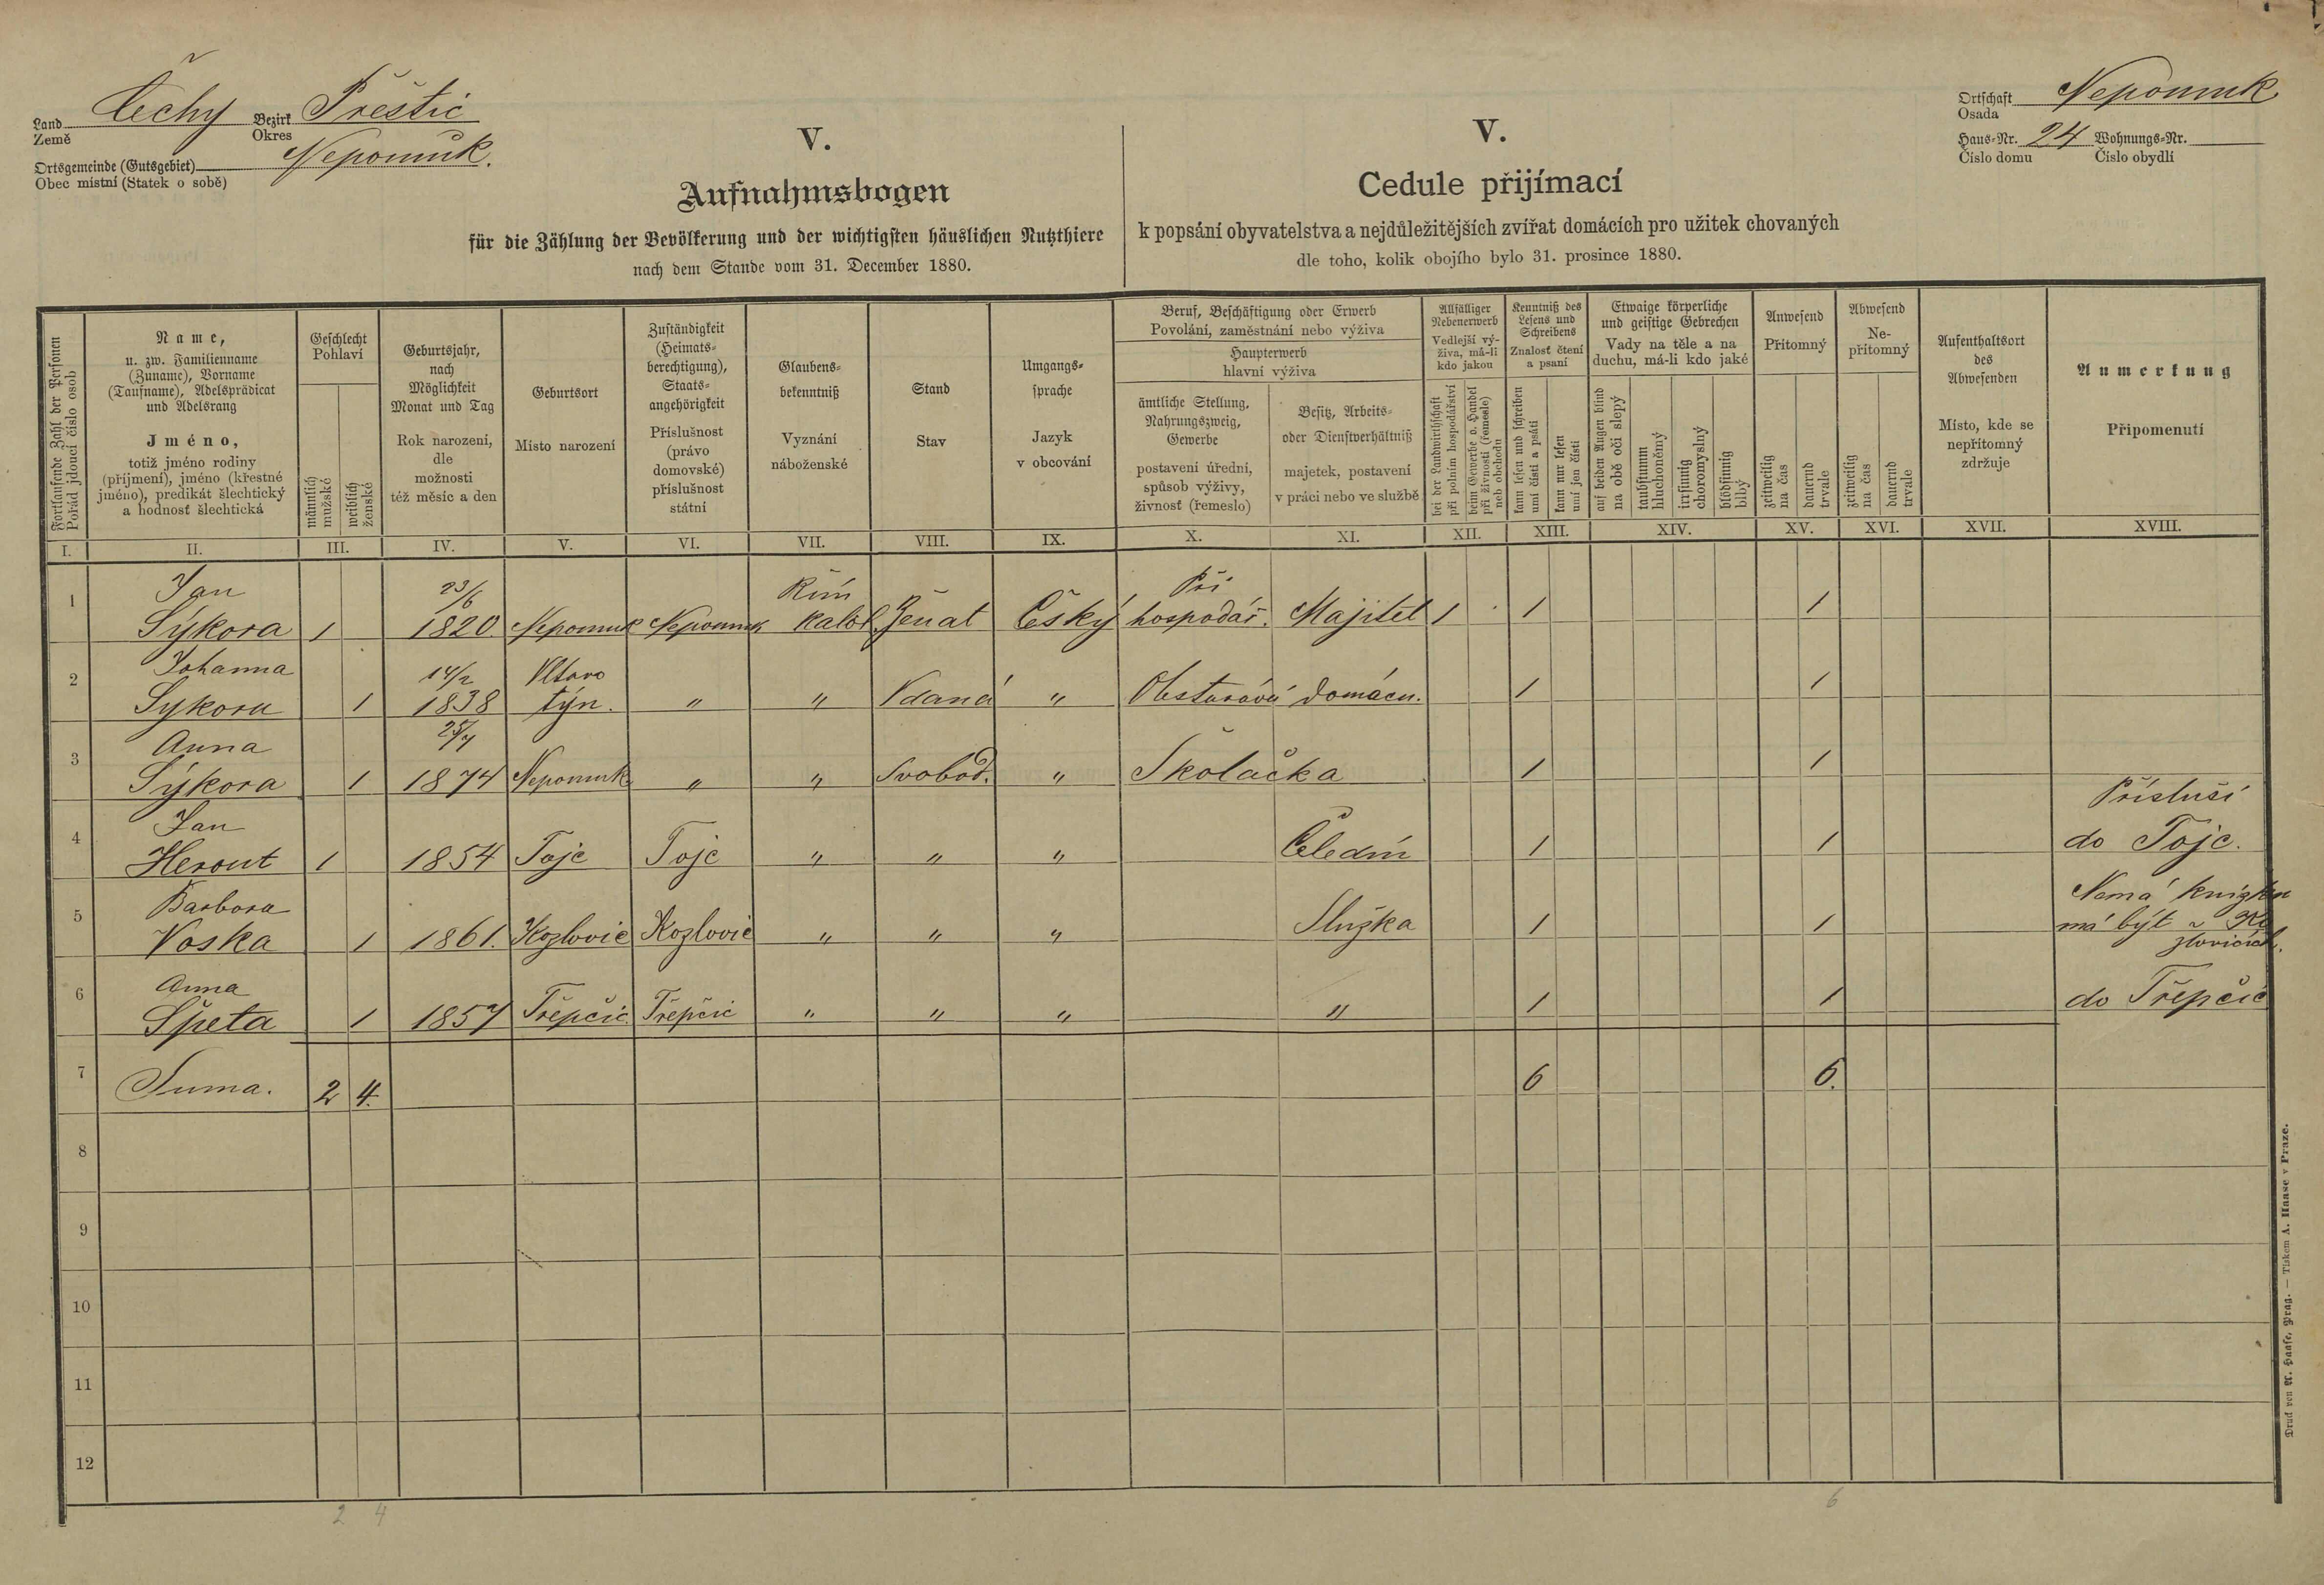 Land Čechy Bezirk Přeštic
Země Okres
Ortsgemeinde (Gutsgebiet) Nepomuk.
Obec místní (Statek o sobě)
Ortschaft Nepomuk
Osada
Haus-Nr. 24 Wohnungs-Nr.
Číslo domu Číslo obydlí
V.
Aufnahmsbogen
für die Zählung der Bevölkerung und der wichtigsten häuslichen Nutzthiere
nach dem Stande vom 31. December 1880.
V.
Cedule přijímací
k popsání obyvatelstva a nejdůležitějších zvířat domácích pro užitek chovaných
dle toho, kolik obojího bylo 31. prosince 1880.
Fortlaufende Zahl der Personen
Pořád jdoucí číslo osob
Name,
u. zw. Familienname
(Zuname), Vorname
(Taufname), Adelsprädicat
und Adelsrang
Jméno,
totiž jméno rodiny
(příjmení), jméno (křestné
jméno), predikát šlechtický
a hodnosť šlechtická
Geschlecht
Pohlaví
männlich
mužské
weiblich
ženské
Geburtsjahr,
nach
Möglichkeit
Monat und Tag
Rok narození,
dle
možnosti
též měsíc a den
Geburtsort
Místo narození
Zuständigkeit
(Heimats-
berechtigung),
Staats-
angehörigkeit
Příslušnost
(právo
domovské)
příslušnost
státní
Glaubens-
bekenntniß
Vyznání
náboženské
Stand
Stav
Umgangs-
sprache
Jazyk
v obcování
Beruf, Beschäftigung oder Erwerb
Povolání, zaměstnání nebo výživa
Haupterwerb
hlavní výživa
ämtliche Stellung,
Nahrungszweig,
Gewerbe
postavení úřední,
spůsob výživy,
živnosť (řemeslo)
Besitz, Arbeits-
oder Dienstverhältniß
majetek, postavení
v práci nebo ve službě
Allfälliger
Nebenerwerb
Vedlejší vý-
živa, má-li
kdo jakou
bei der Landwirthschaft
při polním hospodářství
beim Gewerbe o. Handel
při živnosti (řemesle)
neb obchodu
Kenntniß des
Lesens und
Schreibens
Znalosť čtení
a psaní
kann lesen und schreiben
umí čísti a psáti
kann nur lesen
umí jen čísti
Etwaige körperliche
und geistige Gebrechen
Vady na těle a na
duchu, má-li kdo jaké
auf beiden Augen blind
na obě oči slepý
taubstumm
hluchoněmý
irrsinnig
choromyslný
blödsinnig
blbý
Anwesend
Přítomný
zeitweilig
na čas
dauernd
trvale
Abwesend
Ne-
přítomný
zeitweilig
na čas
dauernd
trvale
Aufenthaltsort
des
Abwesenden
Místo, kde se
nepřítomný
zdržuje
Anmerkung
Připomenutí
I. II. III. IV. V. VI. VII. VIII. IX. X. XI. XII. XIII. XIV. XV. XVI. XVII. XVIII.
Jan 23/6 Řím Při
1 Sýkora 1 1820. Nepomuk Nepomuk katol. Ženat Český hospodář. Majitel 1 1 1
Johanna 14/2 Vltavo
2 Sykora 1 1838 týn. " " Vdaná " Obstarává domácn. 1 1
Anna
3 Sýkora 1 1874 Nepomuk " " Svobod. " Školačka 1 1
Jan Přísluší
4 Herout 1 1854 Tojc Tojc " " " Čeledín 1 1 do Tojc.
Barbora Nemá knížku
5 Voska 1 1861. Kozlovic Kozlovic " " " Služka 1 1 má být v Ko
zlovicích.
Anna
6 Špeta 1 1857 Třepčic. Třepčic " " " " 1 1 do Třepčic
7 Suma. 2 4. 6 6.
8
9
10
11
12
2 4 6
Druck von A. Haase, Prag. — Tiskem A. Haase v Praze.